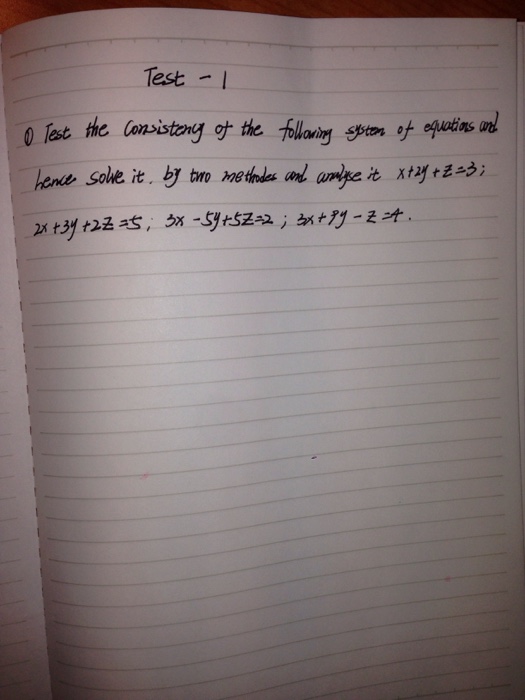 Test - 1
① Test the Consistency of the following system of equations and
hence solve it. by two methodes and analyse it x+2y+z=3;
2x+3y+2z=5; 3x-5y+5z=2; 3x+9y-z=4.